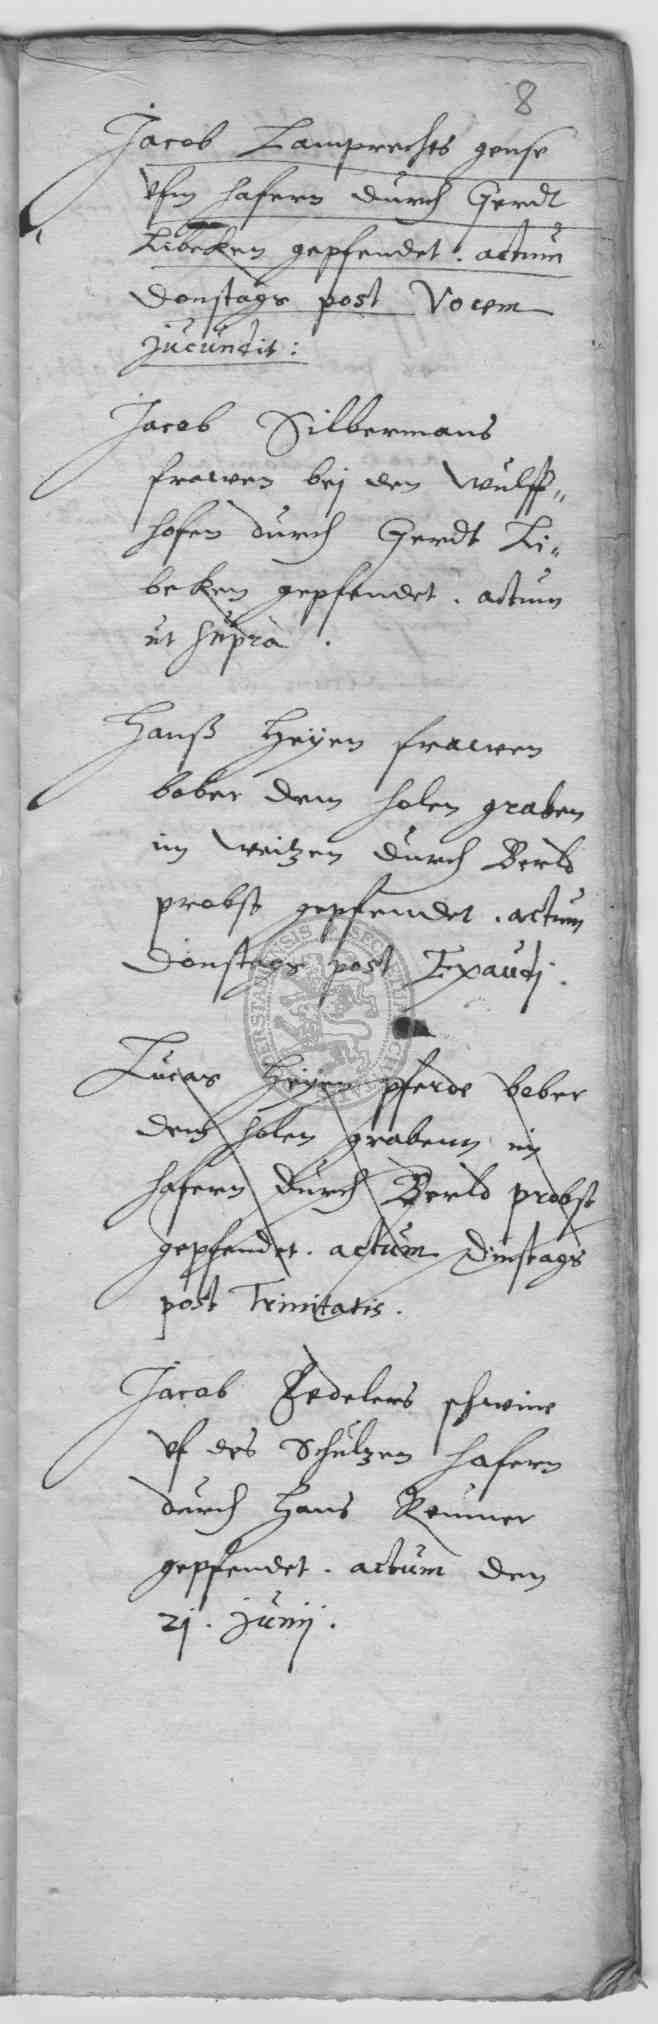 8
Jacob Lamprechts gense
vfm hafern durch Gerdt
Libeken gepfendet. actum
Donstags post Vocem
jucundit:
Jacob Silbermans
frawen bej den Wulff„
hofen durch Gerdt Li„
beken gepfendet. actum
ut supra.
Hanß Heyen frawen
bober dem holen graben
im Weitzen durch Berld
probst gepfendet. actum
Donstags post Exaudj.
Lucas Heyen pferde bober
dem holen grabenn im
hafern durch Berld probst
gepfendet. actum Dinstags
post Trinitatis.
Jacob Zedelers schwine
vf des Schultzen hafern
durch Hans Remmer
gepfendet. actum den
2j. junij.